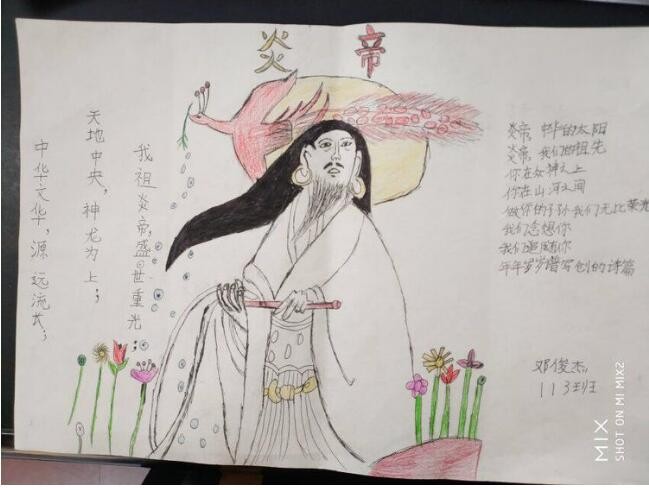 炎帝
我祖炎帝,盛世重光;
天地中央,神龙为上;
中华文华,源远流长;
炎帝 中华的太阳
炎帝 我们的祖先
你在众神之上
你在山河之间
做你的子孙我们无比荣光
我们念想你
我们追随你
年年岁岁谱写创的诗篇
邓俊杰
113班
MIX
SHOT ON MI MIX2